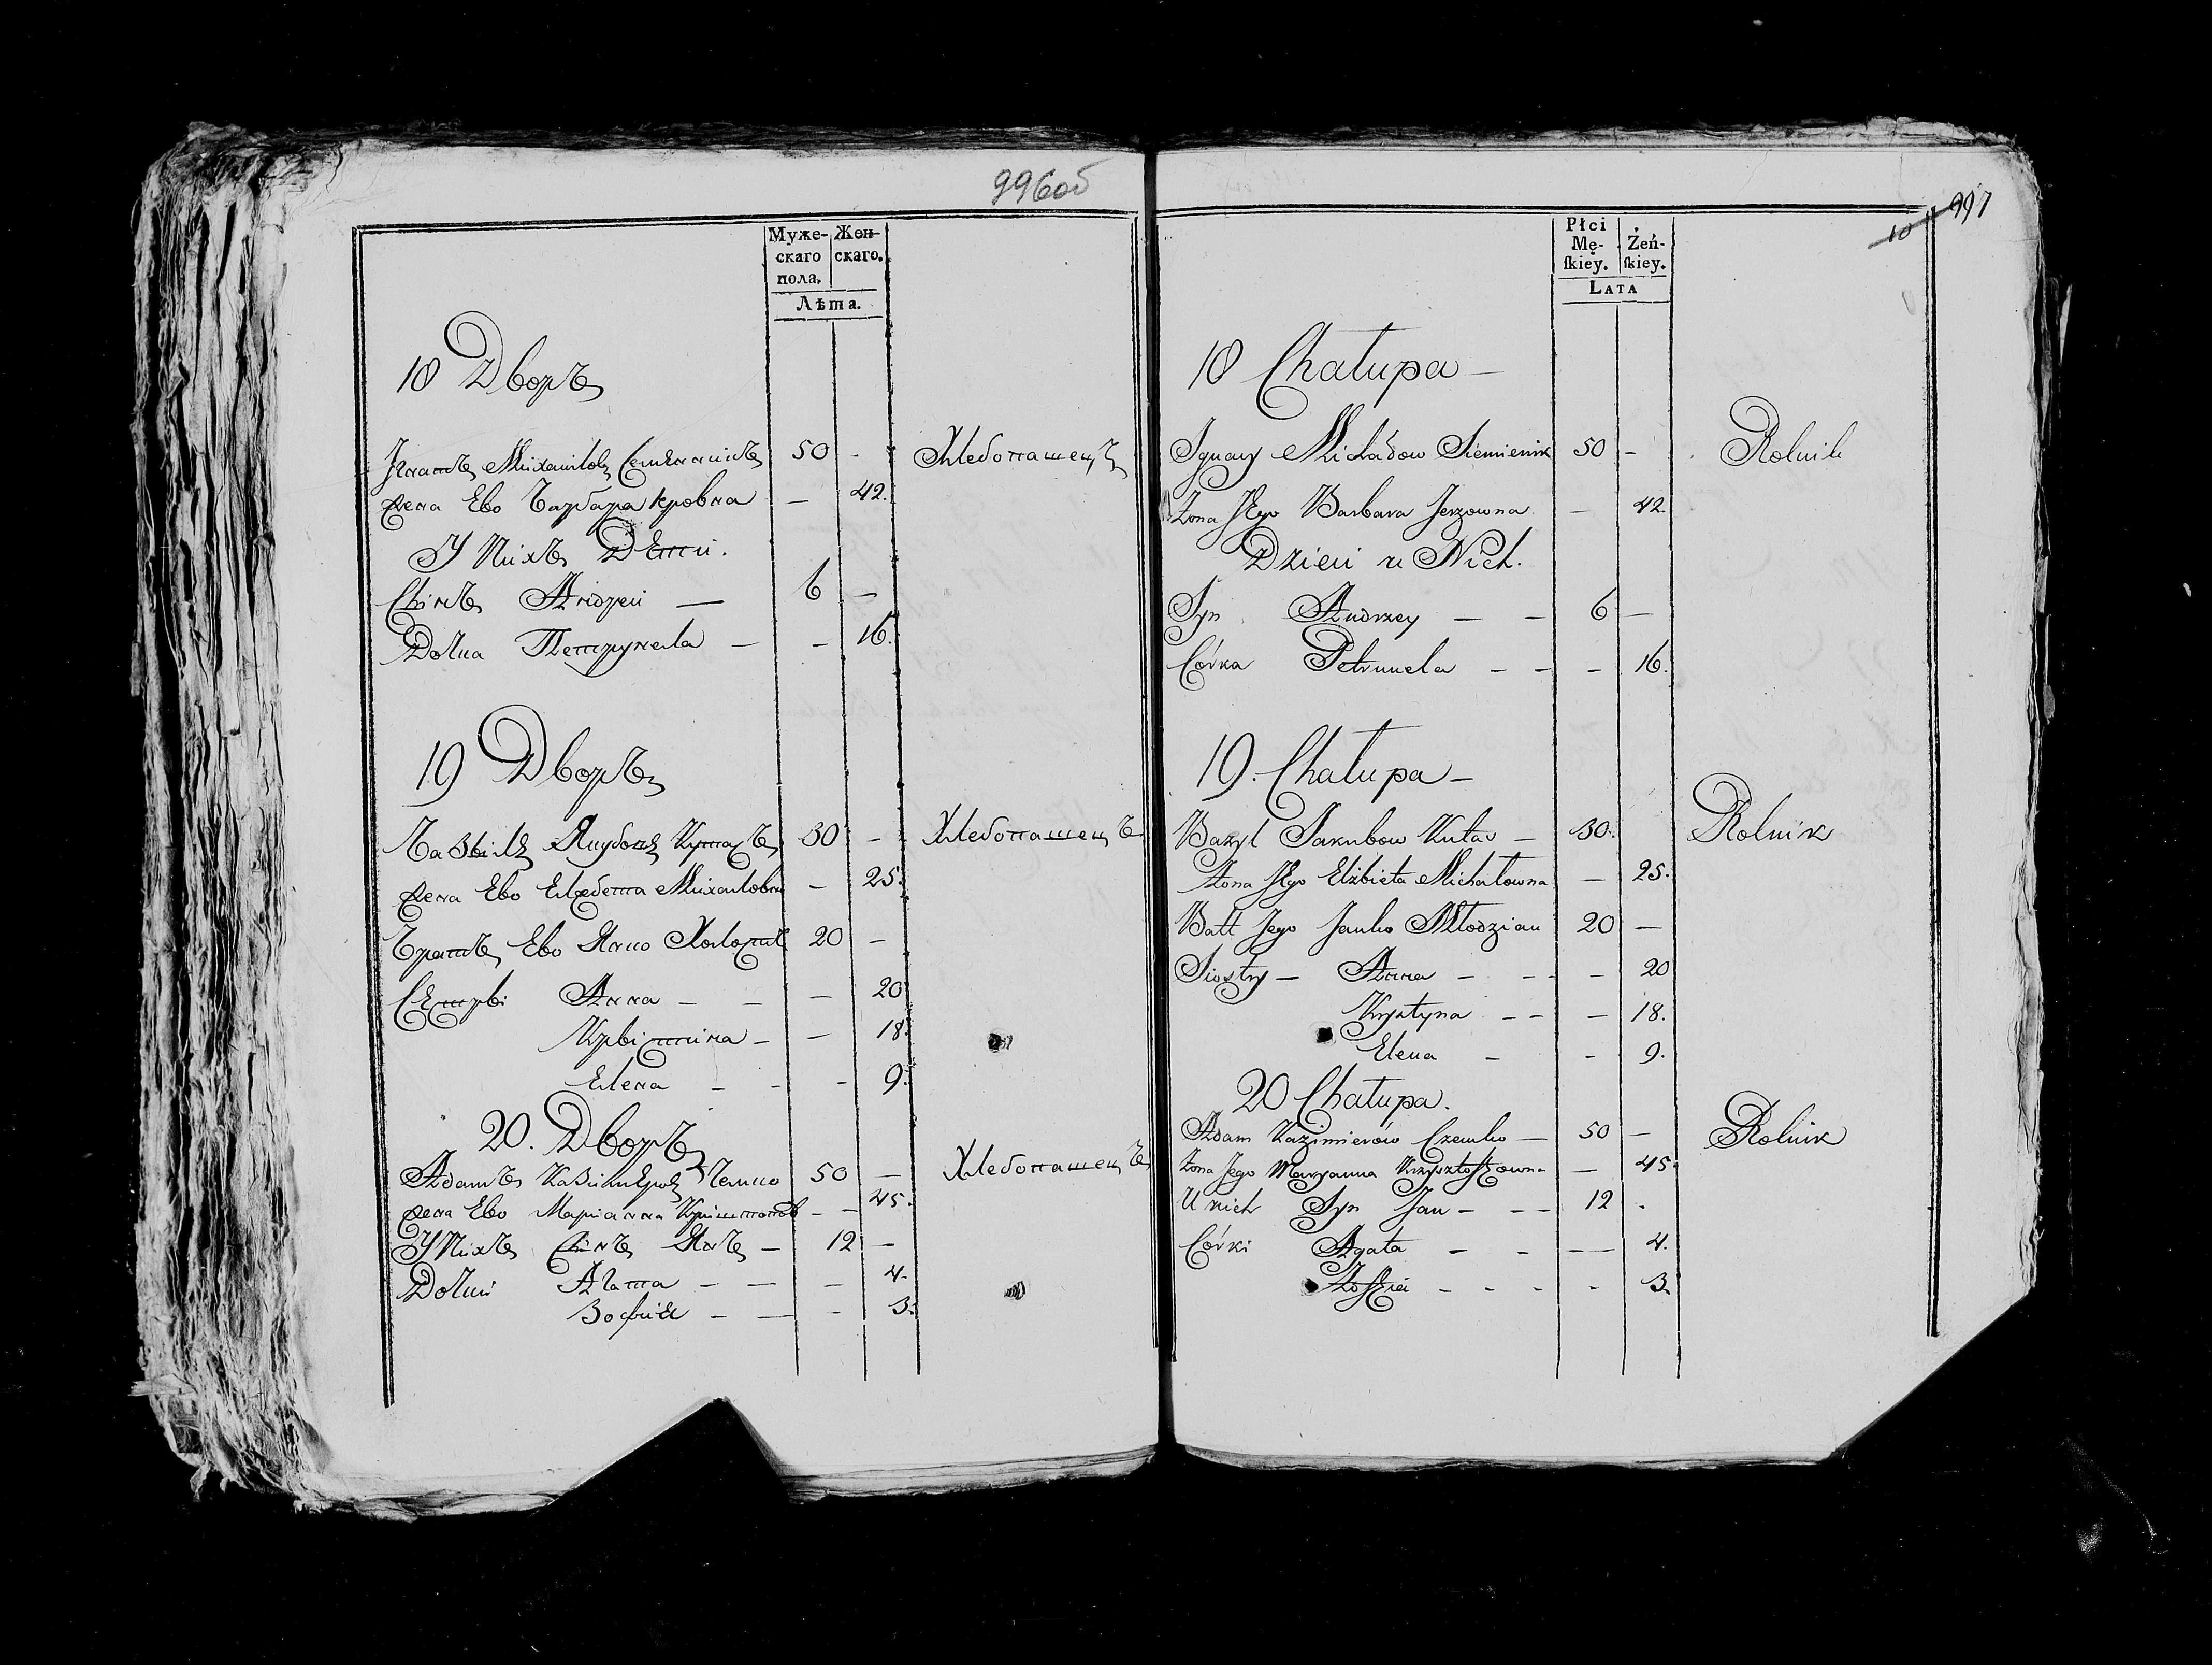 996об
Муже- Жен-
скаго скаго.
пола.
Лѣта.
10 Дворъ
Игнатъ Михаиловъ Семѣнникъ 50 - Хлебопашецъ
жена Ево Барбара — 42.
У Нихъ Дети.
Сынъ Андреи — 6 —
Дочка Петрунеля — - 16.
19 Дворъ
Базылъ Якубовъ Кутасъ 30 - Хлебопашецъ
жена Ево Елжбета Михаловна - 25.
Братъ Ево Янко 20 -
Сестры Анна - - — 20
Крыштина - — 18.
Елена - - - 9.
20. Дворъ
Адамъ Казимеровъ Чемко 50 — Хлебопашецъ
жена Ево Марианна Криштопов - - 45.
У Нихъ Сынъ Янъ - 12 —
Дочки Агата - — - 4.
Зофия - — - 3.
997
10
Płci
Mę- Żeń-
skiey. skiey.
LATA
10 Chałupa -
Ignacy Michałow Siemienik 50 - Rolnik
Żona Jego Barbara Jerzowna - 42
Dzieci u Nich.
Syn Andrzey - - 6 -
Córka Petrunela - - - 16.
19. Chałupa -
Bazyl Jakubow Kutas - 30. Rolnik
Żona Jego Elżbieta Michałowna - 25.
Batt Jego Janko Młodzian 20 -
Siostry - Anna - - - - 20
Krystyna - - - 18.
Elena - - 9.
20 Chałupa.
Adam Kazimierów Czemko - 50 - Rolnik
Żona Jego Maryanna Krzysztofowna - 45.
U nich Syn Jan - - - 12 .
Córki Agata - - - - 4.
Zofija - - - - 3.